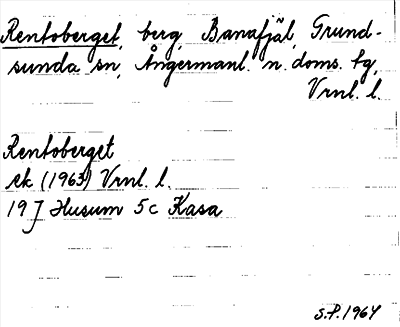 Rentoberget, berg, Banafjäl, Grund-
sunda sn, Ångermanl. n. doms. tg,
Vrnl. l.
Rentoberget
ek (1963) Vrnl. l.
19 J Husum 5 c Kasa
S.P. 1964